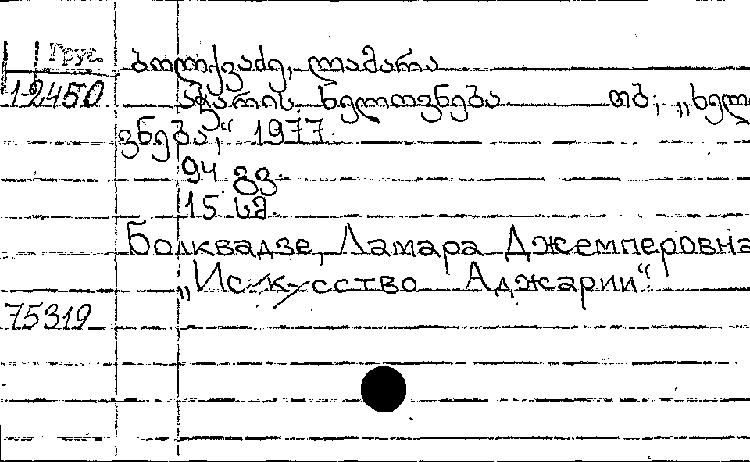 Груз. ბოლქვაძე, ლამარა
12450 აჭარის ხელოვნება თბ; „ხელო
ვნება,“ 1977.
94 გვ.
15 სმ.
Болквадзе, Ламара Джемперовна
„Искусство Аджарии“
75319